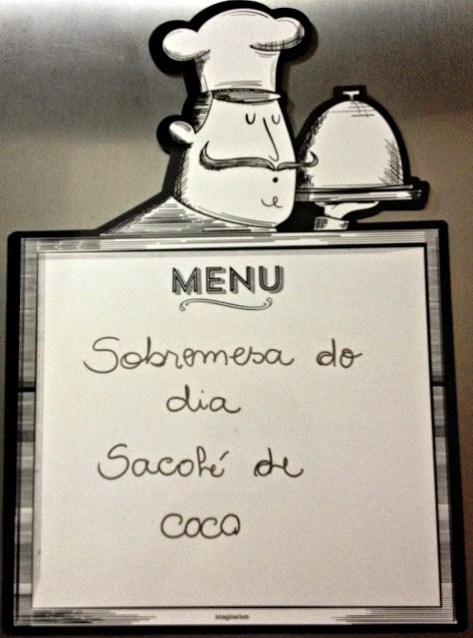 MENU
Sobremesa do
dia
Sacolé de
coco
imaginarium